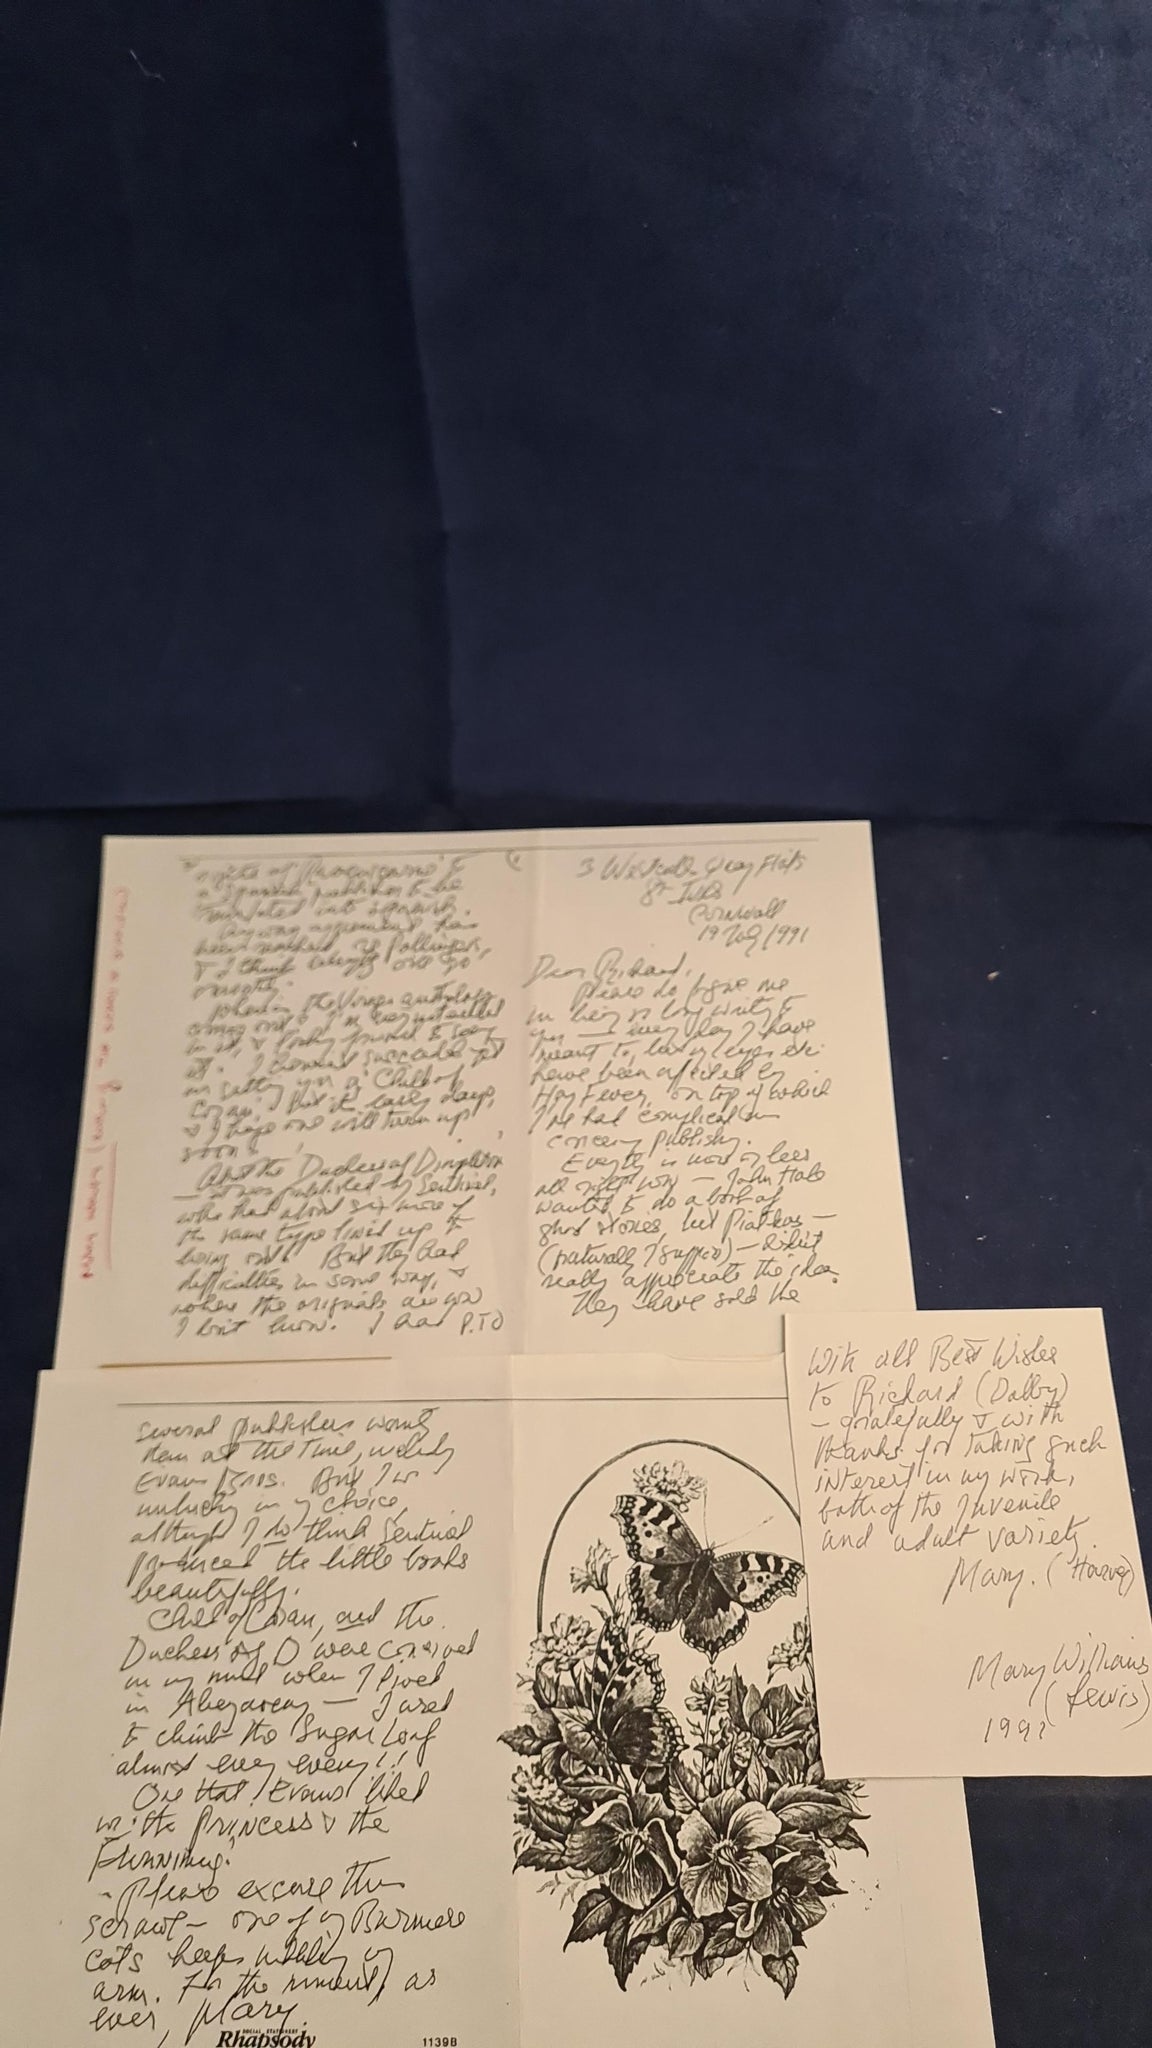 3 Westcotts Quay Flats
St Ives
Cornwall
19 July 1991
Dear Richard,
Please do forgive me
for being so long writing to
you — every day I have
meant to, but my eyes etc
have been affected by
Hay Fever, on top of which
I've had complications
concerning publishing.
is more or less
all right now — John Hale
wanted to do a book of
ghost stories, but Piatkus —
(naturally I suppose) — didn't
really appreciate the idea.
They have sold the
rights of
a Spanish publisher to be
translated into Spanish.
Anyway agreement has
been reached, re Pollinger,
& I think
smoothly.
the Virago anthology
comes out & I'm very interested
in it, &
it. I haven't succeeded yet
in getting you a 'Child of
Caran', but it's early days,
& I hope one will turn up
soon!
About the Duchess of
— it was published by Sentinel,
who had about six more of
the same type lined up to
bring out. But they had
difficulties in some way, &
where the originals are now
I don't know. I had P.T.O
several publishers wanting
them at the time, including
Evans Bros. But I was
unlucky in my choice,
although I do think Sentinel
produced the little books
beautifully.
Child of Caran, and the
Duchess of D were conceived
in my mind when I lived
in Abergavenny — I used
to climb the Sugar Loaf
almost every evening!!
One that 'Evans' liked
was 'the Princess & the

- Please excuse this
scrawl — one of my Burmese
cats keeps my
arm. For the moment, as
ever, Mary.
SOCIAL STATIONERY
Rhapsody
1139B
With all Best Wishes
to Richard (Dalby)
- gratefully & with
thanks for taking such
interest in my work,
both of the Juvenile
and adult variety.
Mary. (Harvey)
Mary Williams
(Lewis)
1991